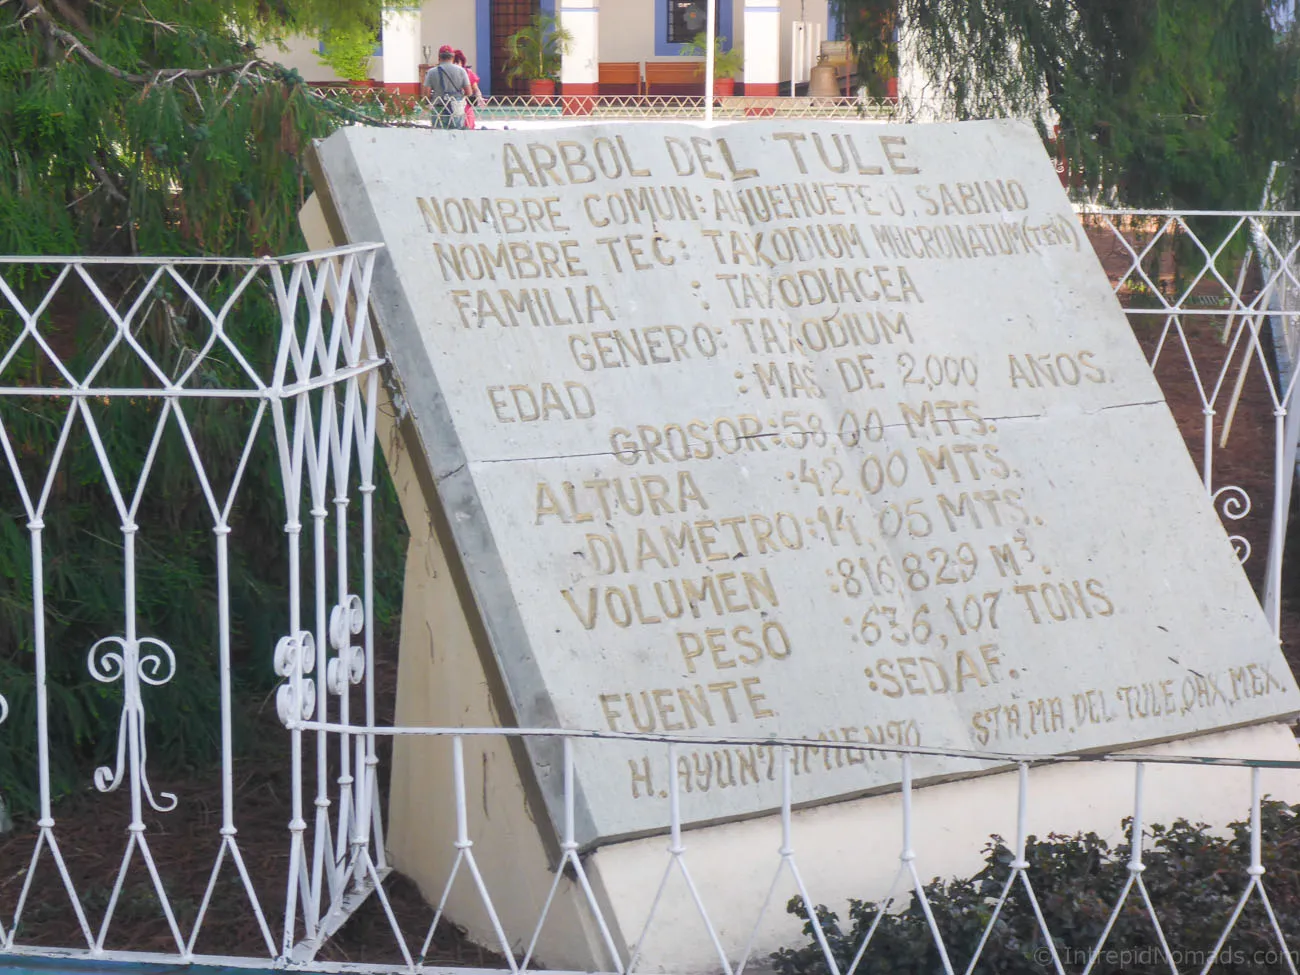 ARBOL DEL TULE
NOMBRE COMUN: AHUEHUETE O, SABINO
NOMBRE TEC: TAXODIUM MUCRONATUM(TEN)
FAMILIA : TAXODIACEA
GENERO: TAXODIUM
EDAD : MAS DE 2,000 AÑOS.
GROSOR: 58,00 MTS.
ALTURA : 42,00 MTS.
DIAMETRO: 14,05 MTS.
VOLUMEN : 816,829 M³.
PESO : 636,107 TONS
FUENTE : SEDAF.
H. AYUNTAMIENTO STA, MA, DEL TULE, OAX, MEX.
© IntrepidNomads.com